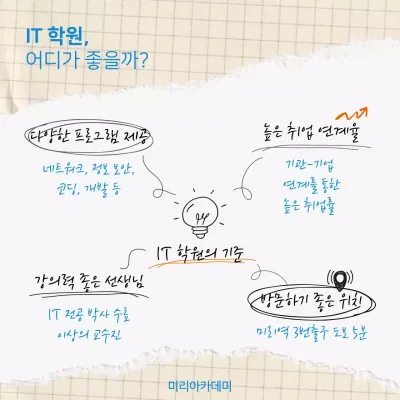 IT 학원,
어디가 좋을까?
다양한 프로그램 제공
네트워크, 정보 보안,
코딩, 개발 등
높은 취업 연계율
기관-기업
연계를 통한
높은 취업률
IT 학원의 기준
강의력 좋은 선생님
IT 전공 박사 수료
이상의 교수진
방문하기 좋은 위치
미리역 3번출구 도보 5분
미리아카데미